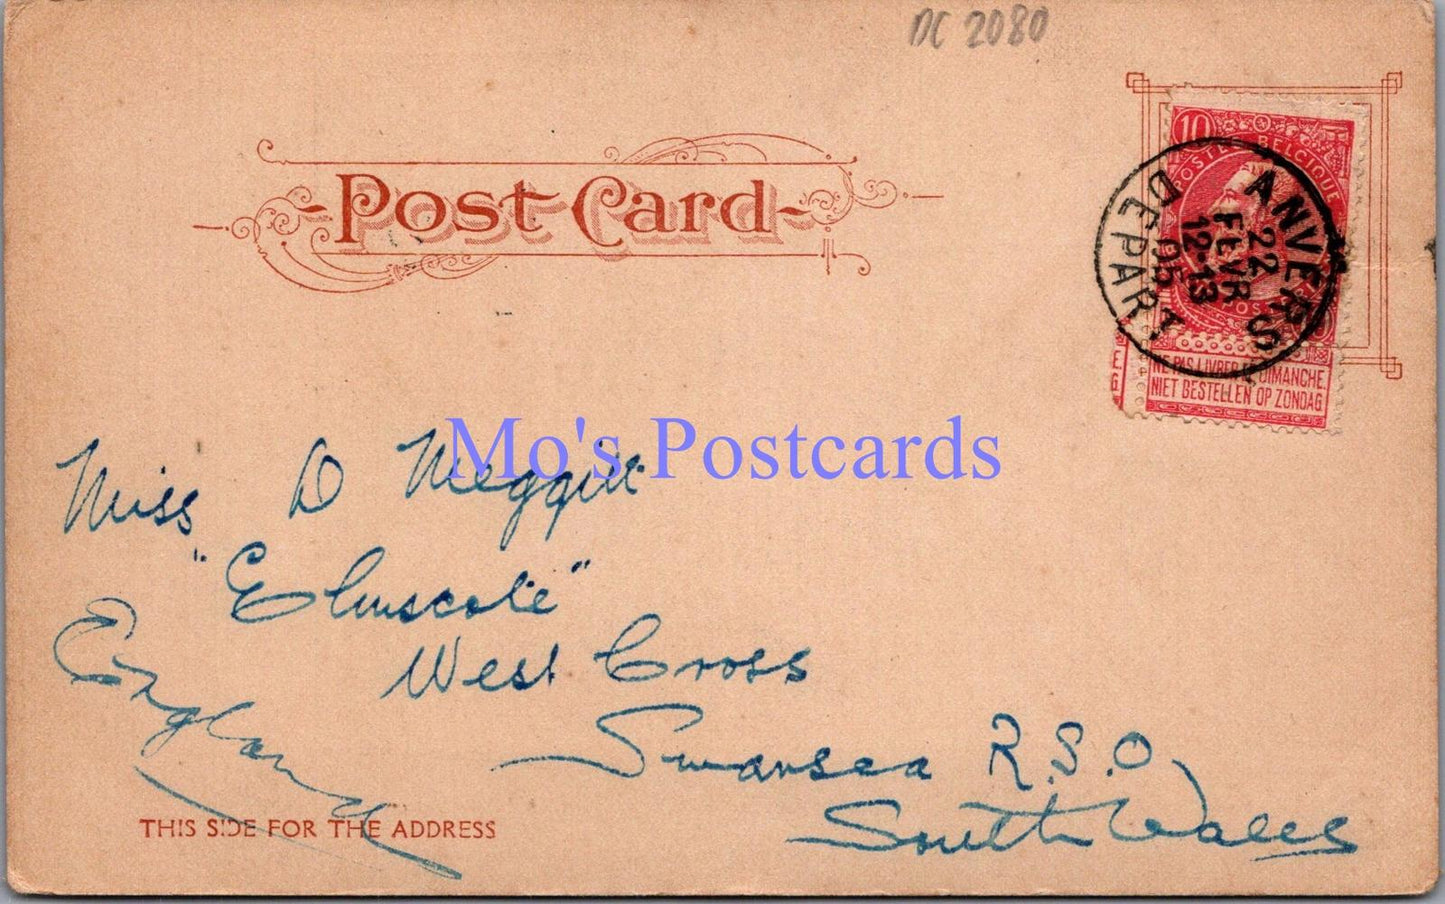 DC 2080
Post Card
10
POSTES BELGIQUE
ANVERS
22
FEVR
12-13
05
DEPART
NE PAS LIVRER LE DIMANCHE.
NIET BESTELLEN OP ZONDAG
Mo's Postcards
Miss D Meggitt
"Elmscote"
West Cross
Swansea R.S.O
South Wales
England
THIS SIDE FOR THE ADDRESS